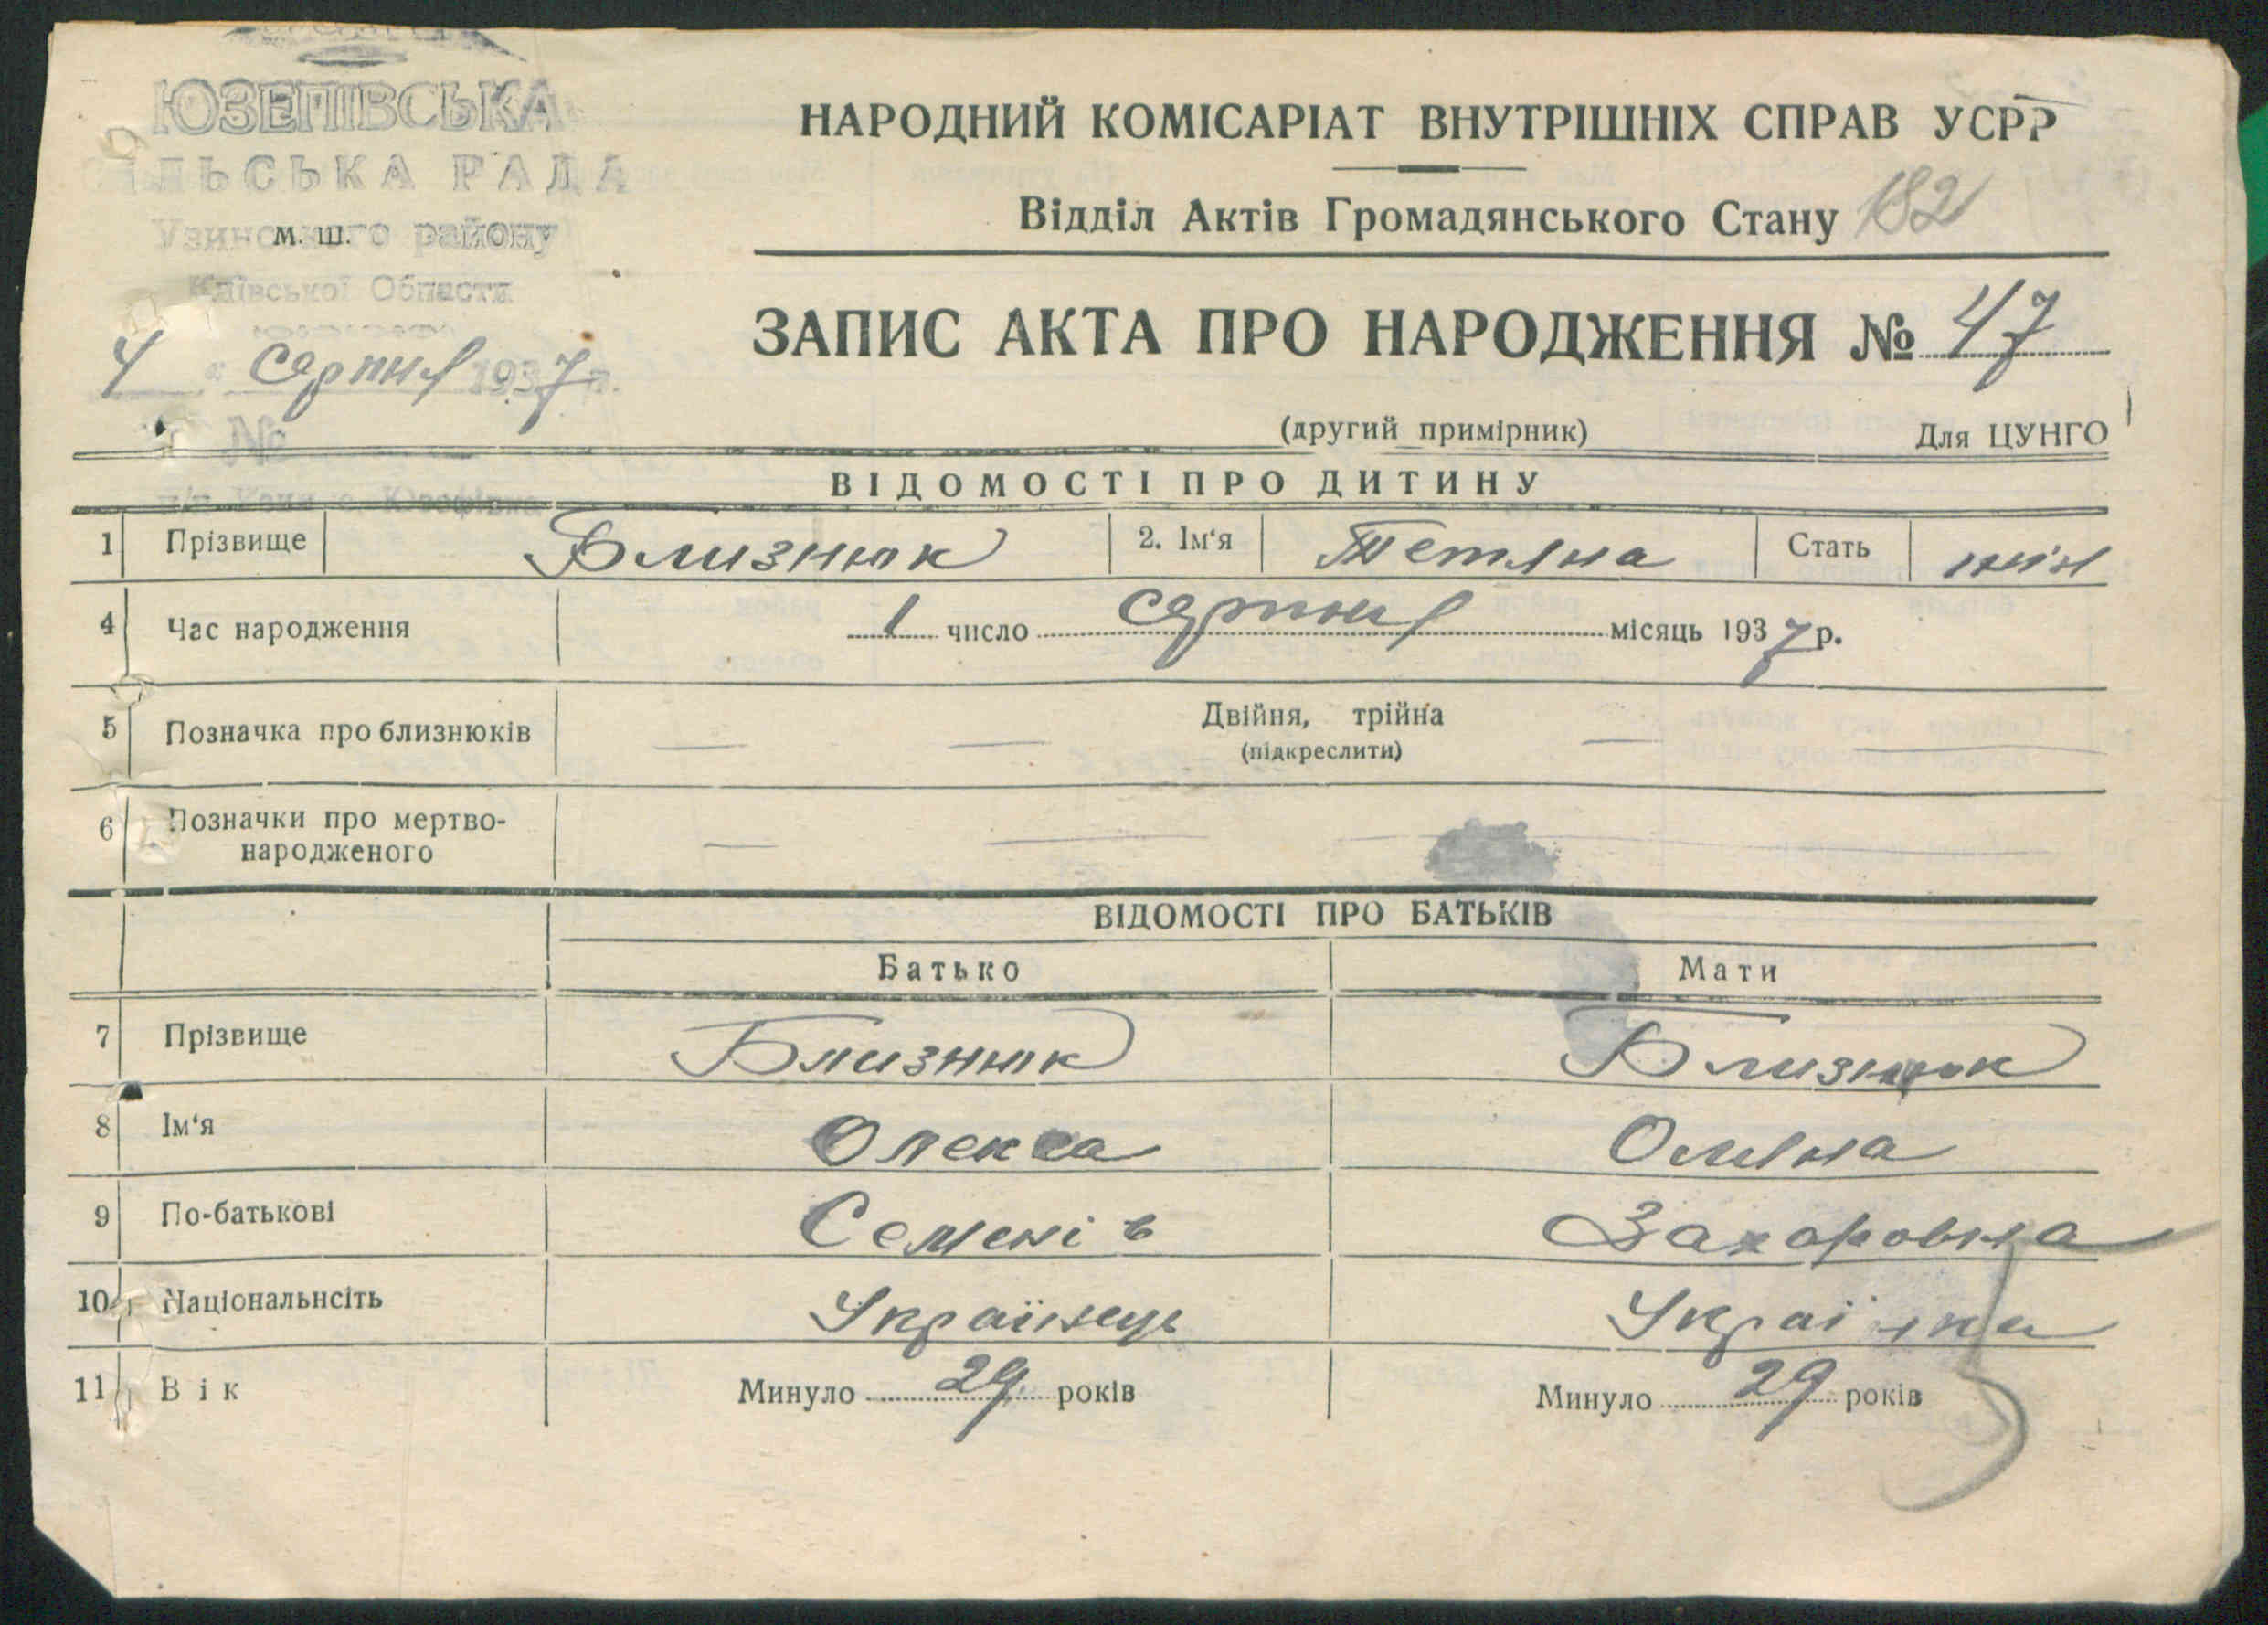 ЮЗЕПІВСЬКА
СІЛЬСЬКА РАДА
Узинського району
м. ш.
Київської Области
4 " серпня 1937 р.
№
НАРОДНИЙ КОМІСАРІАТ ВНУТРІШНІХ СПРАВ УСРР
Відділ Актів Громадянського Стану 182
ЗАПИС АКТА ПРО НАРОДЖЕННЯ № 47
(другий примірник) Для ЦУНГО
ВІДОМОСТІ ПРО ДИТИНУ
1 Прізвище Близнюк 2. Ім'я Тетяна Стать жін
4 Час народження 1 число серпня місяць 1937 р.
5 Позначка про близнюків Двійня, трійна
(підкреслити)
6 Позначки про мертво-
народженого
ВІДОМОСТІ ПРО БАТЬКІВ
Батько Мати
7 Прізвище Близнюк Близнюк
8 Ім'я Олекса Оляна
9 По-батькові Семенів Захаровна
10 Національнсіть Українець Українка
11 Вік Минуло 29 років Минуло 29 років